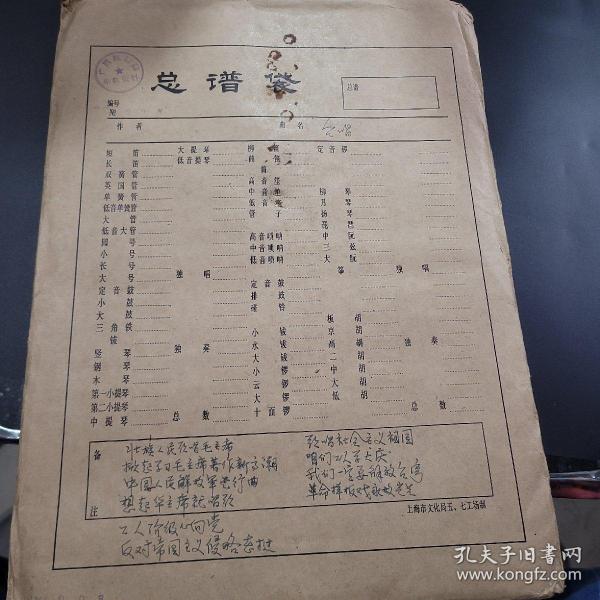 总谱袋
总谱
编号
作者
曲名 合唱
短笛 大提琴 柳笛 定音锣
长笛 低音提琴
双簧管
英国管
单簧管
低音单簧管
大管
低音大管
圆号
小号
长号 独唱
大号
定音鼓
小鼓
大鼓
三角铁
钹
竖琴 独奏
钢琴
木琴
第一小提琴
第二小提琴
中提琴 总数
高音唢呐
中音唢呐
低音唢呐
筝 独唱
定音鼓
排鼓
碰铃
小钹
水钹
大钹
小锣
云锣
大锣
十面锣
柳琴
月琴
扬琴
琵琶
中阮
大阮
三弦
板胡
京胡
高胡 独奏
二胡
中胡
大胡
低胡
总数
备注
壮族人民歌唱毛主席
掀起学习毛主席著作新高潮
中国人民解放军进行曲
想起华主席就唱歌
工人阶级心向党
反对帝国主义侵略
歌唱社会主义祖国
咱们工人学大庆
我们一定要解放台湾
革命样板戏
上海市文化局五、七工场制
孔夫子旧书网
www.kongfz.com